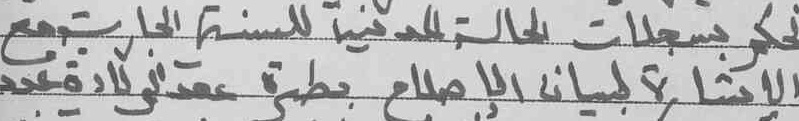 الحكم بسجلات الحالة المدنية للسنة الجارية مع
الاشارة لبيان الإصلاح بطرة عقد الولادة عدد